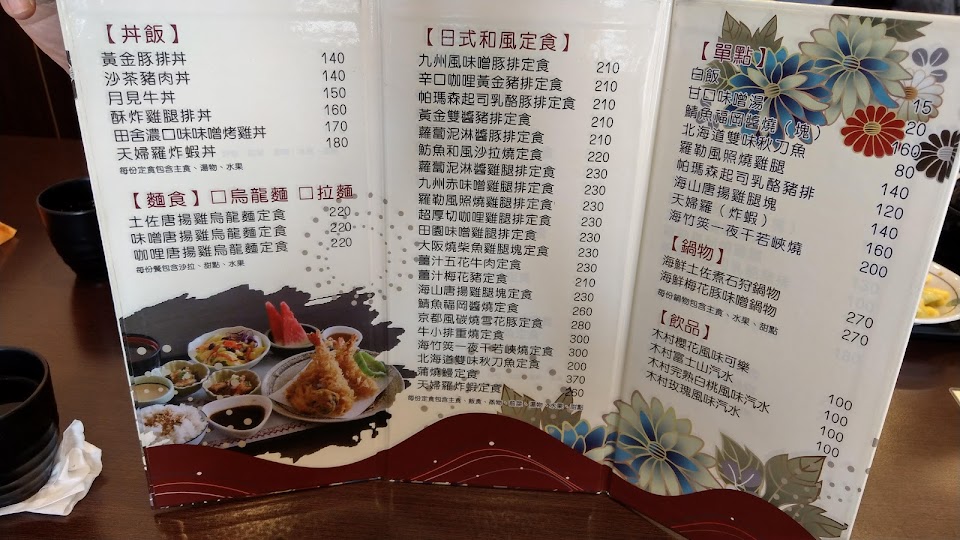 【丼飯】
黃金豚排丼 140
沙茶豬肉丼 140
月見牛丼 150
酥炸雞腿排丼 160
田舍濃口味味噌烤雞丼 170
天婦羅炸蝦丼 180
每份定食包含主食、湯物、水果
【麵食】□烏龍麵 □拉麵
土佐唐揚雞烏龍麵定食 220
味噌唐揚雞烏龍麵定食 220
咖哩唐揚雞烏龍麵定食 220
每份餐包含沙拉、甜點、水果
【日式和風定食】
九州風味噌豚排定食 210
辛口咖哩黃金豬排定食 210
帕瑪森起司乳酪豚排定食 210
黃金雙醬豬排定食 210
蘿蔔泥淋醬豚排定食 210
魴魚和風沙拉燒定食 220
蘿蔔泥淋醬雞腿定食 230
九州赤味噌雞腿排定食 230
羅勒風照燒雞腿定食 230
超厚切咖哩雞腿排定食 230
田園味噌雞腿排定食 230
大阪燒柴魚雞腿塊定食 230
薑汁五花牛肉定食 230
薑汁梅花豬定食 210
海山唐揚雞腿塊定食 230
鯖魚福岡醬燒定食 260
京都風碳燒雪花豚定食 280
牛小排重燒定食 300
海竹筴一夜干若峽燒定食 300
北海道雙味秋刀魚定食 200
蒲燒鰻定食 370
天婦羅炸蝦定食 260
【單點】
白飯 15
甘口味噌湯 20
鯖魚福岡醬燒（塊） 160
北海道雙味秋刀魚 80
羅勒風照燒雞腿 140
帕瑪森起司乳酪豬排 120
海山唐揚雞腿塊 140
天婦羅（炸蝦） 160
海竹筴一夜干若峽燒 200
【鍋物】
海鮮土佐煮石狩鍋物 270
海鮮梅花豚味噌鍋物 270
每份鍋物包含主食、水果、甜點
【飲品】
木村櫻花風味可樂 100
木村富士山汽水 100
木村完熟白桃風味汽水 100
木村玫瑰風味汽水 100